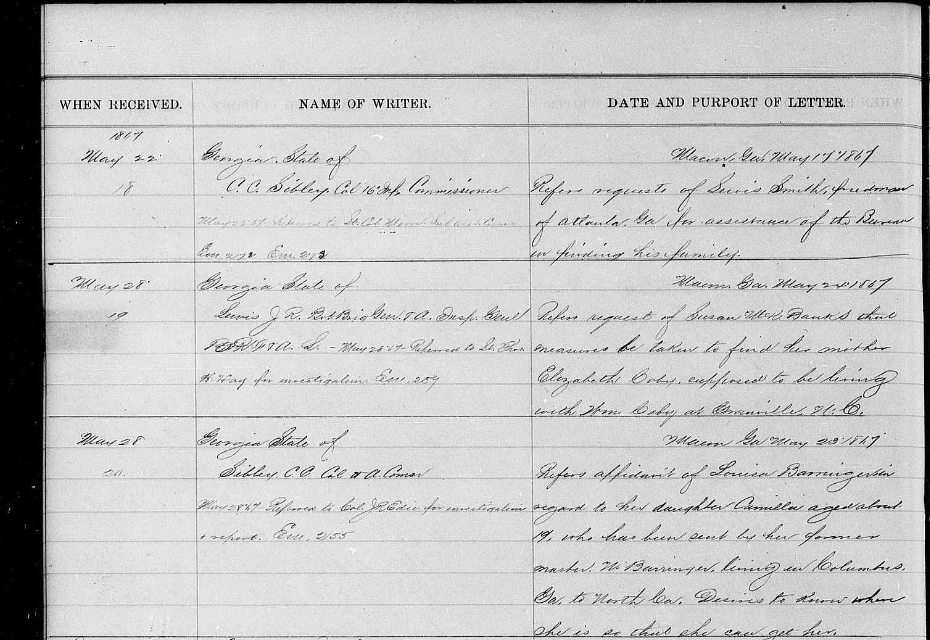 WHEN RECEIVED.
NAME OF WRITER.
DATE AND PURPORT OF LETTER.
1867
May 22
Georgia, State of
Macon, Ga. May 17 1867
18
C. C. Sibley, Col 16" Inf. Commissioner
Refers requests of Lewis Smith, freedman
of Atlanta, Ga. for assistance of the Bureau
May 22 67 Referred to Lt. Col
in finding his family.
May 28
Georgia State of
Macon Ga. May 24 1867
19
Lewis J. R. Bvt Brig Genl & A. Insp. Genl
Refers request of Susan McK. Banks that
& A. L. - May 28 67. Referred to Lt.
measures be taken to find her mother
for investigation
Elizabeth Coby, supposed to be living
with Wm Coby at Granville, N. C.
May 28
Georgia State of
Macon Ga May 23 1867
20
Sibley C. C. Col & A. Comr
Refers affidavit of Louisa Barringer in
May 28 67 Referred to Col. J R Edie for investigation
regard to her daughter Camilla aged about
& report. 255
19, who has been sent by her former
master, W. Barringer, living in Columbus,
Ga. to North Ca. Desires to know where
she is so that she can get her.